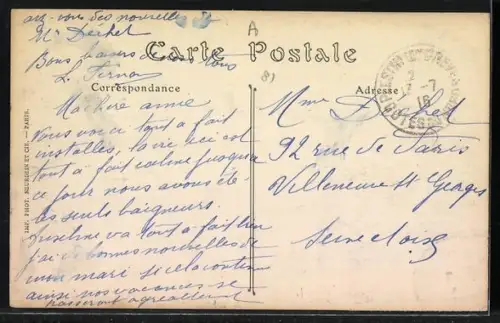 avez-vous des nouvelles de
Mr Déchet
Bons baisers de tous
L. Fernon
Carte Postale
A
81
Correspondance
Adresse
Ma chère amie
Vous voici tout à fait
installés, la vie ici est
tout à fait calme jusqu'à
ce jour nous avons été
les seuls baigneurs.
va tout à fait bien
j'ai de bonnes nouvelles de
mon mari si cela continue
ainsi nos vacances se
passeront agréablement
Mme Déchet
92 rue de Paris
Villeneuve St Georges
Seine et Oise
7
16
IMP. PHOT. NEURDEIN ET CIE. — PARIS.